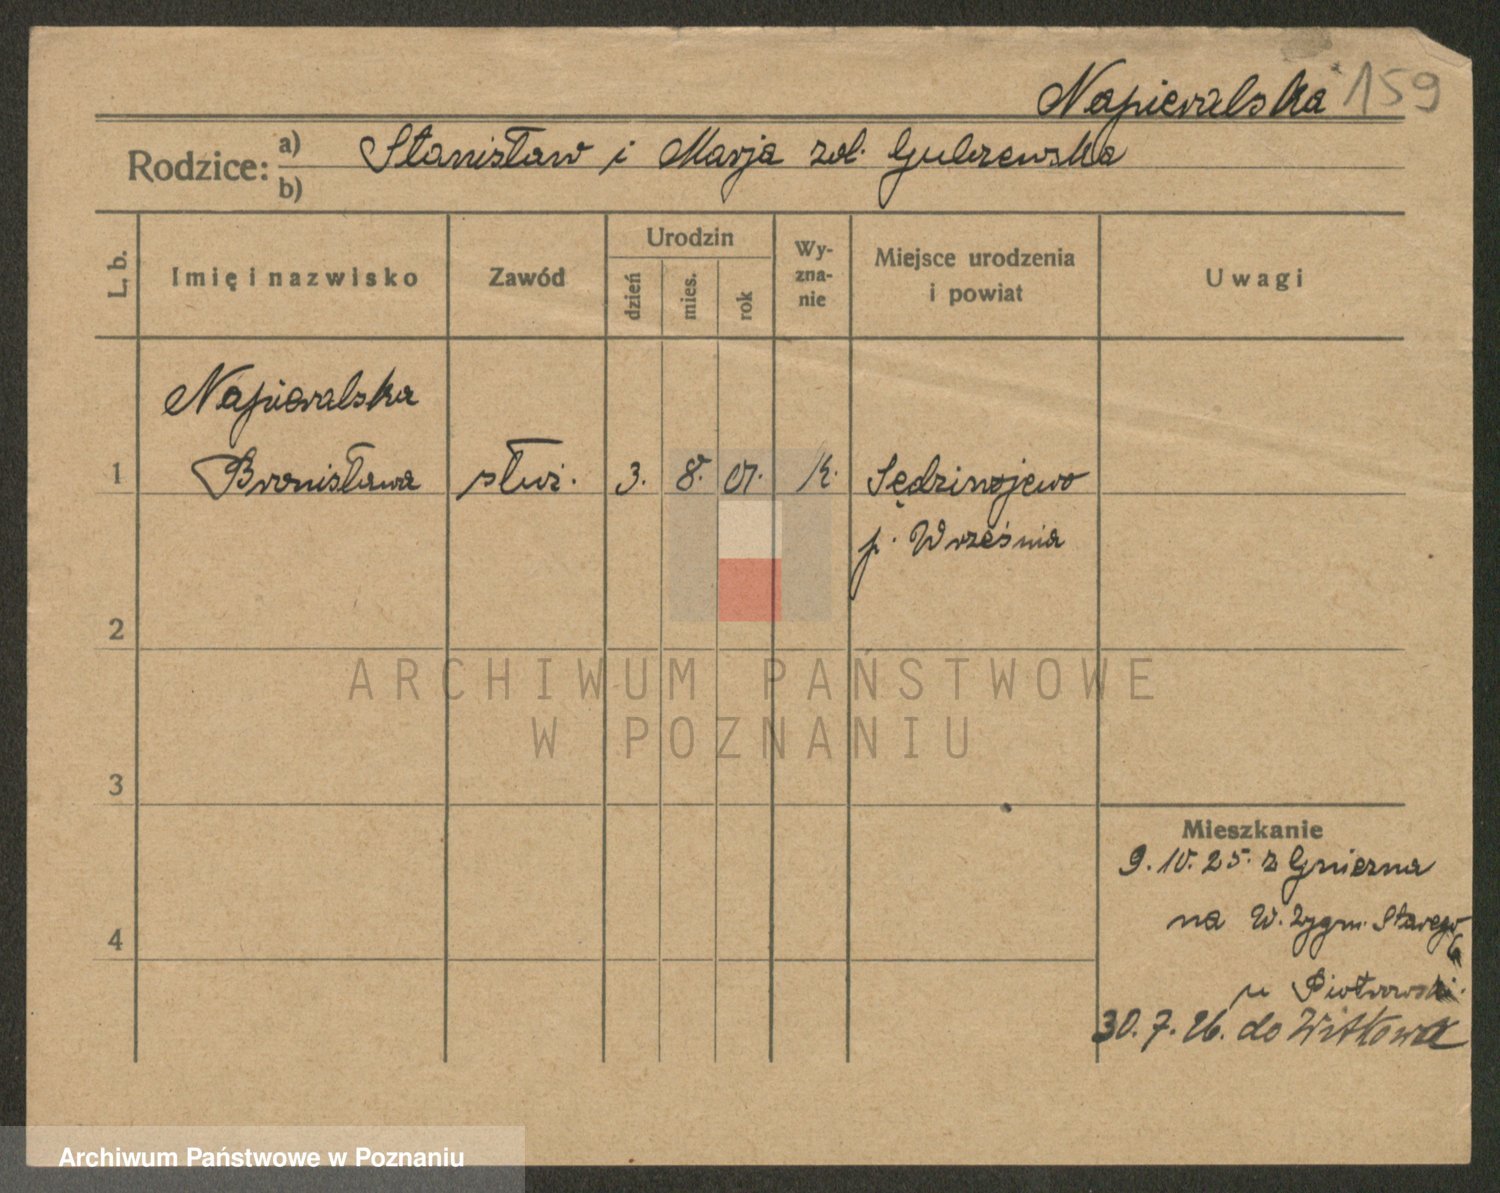 Napieralska 159
Rodzice: a) Stanisław i Marja
b)
L. b.
Imię i nazwisko
Zawód
Urodzin
dzień
mies.
rok
Wy-
zna-
nie
Miejsce urodzenia
i powiat
Uwagi
Napieralska
1 Bronisława służ. 3. 8. 01. k. Sędziwojewo
p. Września
2
ARCHIWUM PAŃSTWOWE
W POZNANIU
3
Mieszkanie
9. 10. 25. z Gniezna
na W. Zygm. Starego
6
4
u Piotrowski.
30. 7. 26. do Witkowa
Archiwum Państwowe w Poznaniu